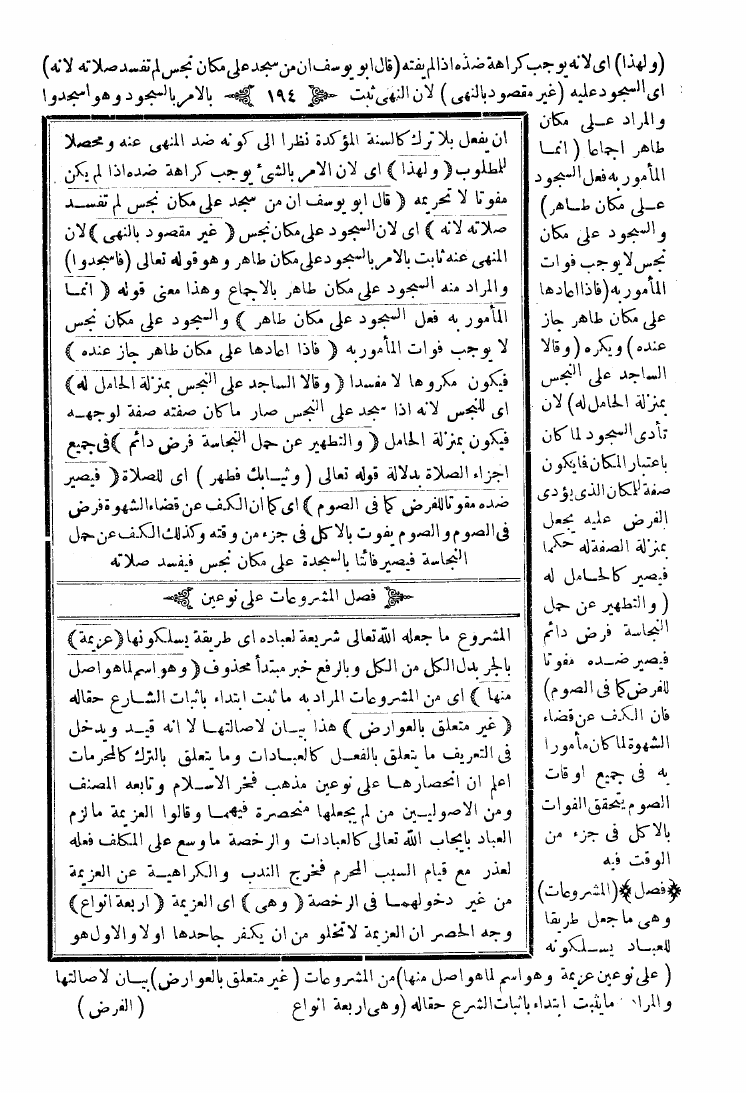 (ولهذا) اى لانه يوجب كراهة ضده اذا لم يفته (قال ابو يوسف ان من سجد على مكان نجس لم تفسد صلاته لانه)
اى السجود عليه (غير مقصود بالنهى) لان النهى ثبت ﴿ ١٩٤ ﴾ بالامر بالسجود وهو اسجدوا
والمراد عـلى مكان
طاهر اجماعا (انمـا
المأمور به فعل السجود
عـلى مكان طـاهر)
والسجود على مكان
نجس لا يوجب فوات
المأمور به (فاذا اعادها
على مكان طاهر جاز
عنده) ويكره (وقالا
الساجد على النجس
بمنزلة الحامل له) لان
تأدى السجود لما كان
باعتبار المكان فايكون
صفة للمكان الذى يؤدى
الفرض عليه يجعل
بمنزلة الصفة له حكما
فيصير كالحـامل له
(والتطهير عن حمل
النجاسة فرض دائم
فيصير ضـده مفوتا
للفرض كما فى الصوم)
فان الكف عن قضاء
الشهوة لما كان مأمورا
به فى جميع اوقات
الصوم يتحقق الفوات
بالاكل فى جزء من
الوقت فيه
﴿فصل﴾ (المشروعات)
وهى ما جعل طريقا
للعبـاد يسـلكونه
(على نوعين عزيمة وهو اسم لما هو اصل منها) من المشروعات (غير متعلق بالعوارض) بيـان لاصالتها
والمراد ما يثبت ابتداء باثبات الشرع حقا له (وهى اربعة انواع (الفرض)
ان يفعل بلا ترك كالسنة المؤكدة نظرا الى كونه ضد المنهى عنه ومحصلا
للمطلوب ﴿ولهذا﴾ اى لان الامر بالشئ يوجب كراهة ضده اذا لم يكن
مفوتا لا تحريمه ﴿قال ابو يوسف ان من سجد على مكان نجس لم تفسـد
صلاته لانه﴾ اى لان السجود على مكان نجس ﴿غير مقصود بالنهى﴾ لان
المنهى عنه ثابت بالامر بالسجود على مكان طاهر وهو قوله تعالى (فاسجدوا)
والمراد منه السجود على مكان طاهر بالاجماع وهذا معنى قوله ﴿انمـا
المأمور به فعل السجود على مكان طاهر﴾ والسجود على مكان نجس
لا يوجب فوات المأمور به ﴿فاذا اعادها على مكان طاهر جاز عنده﴾
فيكون مكروها لا مفسدا ﴿وقالا الساجد على النجس بمنزلة الحامل له﴾
اى للنجس لانه اذا سجد على النجس صار ما كان صفته صفة لوجهـه
فيكون بمنزلة الحامل ﴿والتطهير عن حمل النجاسة فرض دائم﴾ فى جميع
اجزاء الصلاة بدلالة قوله تعالى (وثيـابك فطهر) اى للصلاة ﴿فيصير
ضده مفوتا للفرض كما فى الصوم﴾ اى كما ان الكف عن قضاء الشهوة فرض
فى الصوم والصوم يفوت بالاكل فى جزء من وقته وكذلك الكف عن حمل
النجاسة فيصير فائتا بالسجدة على مكان نجس فيفسد صلاته
﴿ فصل المشروعات على نوعين ﴾
المشروع ما جعله الله تعالى شريعة لعباده اى طريقة يسلكونها ﴿عزيمة﴾
بالجر بدل الكل من الكل وبالرفع خبر مبتدأ محذوف ﴿وهو اسم لما هو اصل
منها﴾ اى من المشروعات المراد به ما ثبت ابتداء باثبات الشـارع حقا له
﴿غير متعلق بالعوارض﴾ هذا بيـان لاصالتهـا لا انه قيـد ويدخل
فى التعريف ما يتعلق بالفعـل كالعبـادات وما يتعلق بالترك كالمحرمات
اعلم ان انحصارهـا على نوعين مذهب فخر الاسـلام وتابعه المصنف
ومن الاصوليـين من لم يجعلها منحصرة فيهمـا وقالوا العزيمة ما لزم
العباد بايجاب الله تعالى كالعبادات والرخصة ما وسع على المكلف فعله
لعذر مع قيام السبب المحرم فخرج الندب والكراهيـة عن العزيمة
من غير دخولهمـا فى الرخصة ﴿وهى﴾ اى العزيمة ﴿اربعة انواع﴾
وجه الحصر ان العزيمة لا تخلو من ان يكفر جاحدها اولا والاول هو